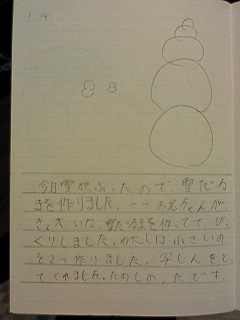 1 14
今日雪がふったので、雪だる
まを作りました。一つお兄ちゃんが
きょ大いな雪だるまを作ってて、びっ
くりしました。わたしは小さいの
を2つ作りました。写しんをと
ってくれました。たのしかったです。